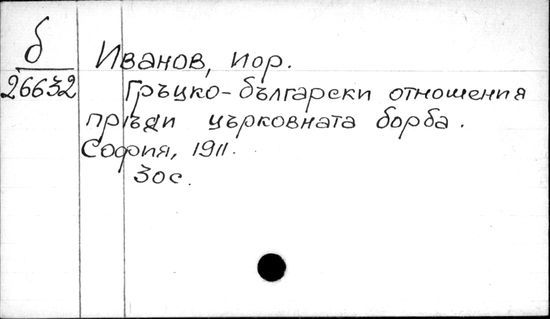 б
26632
Иванов, Йор.
Гръцко-български отношения
прѣди църковната борба.
София, 1911.
30 с.